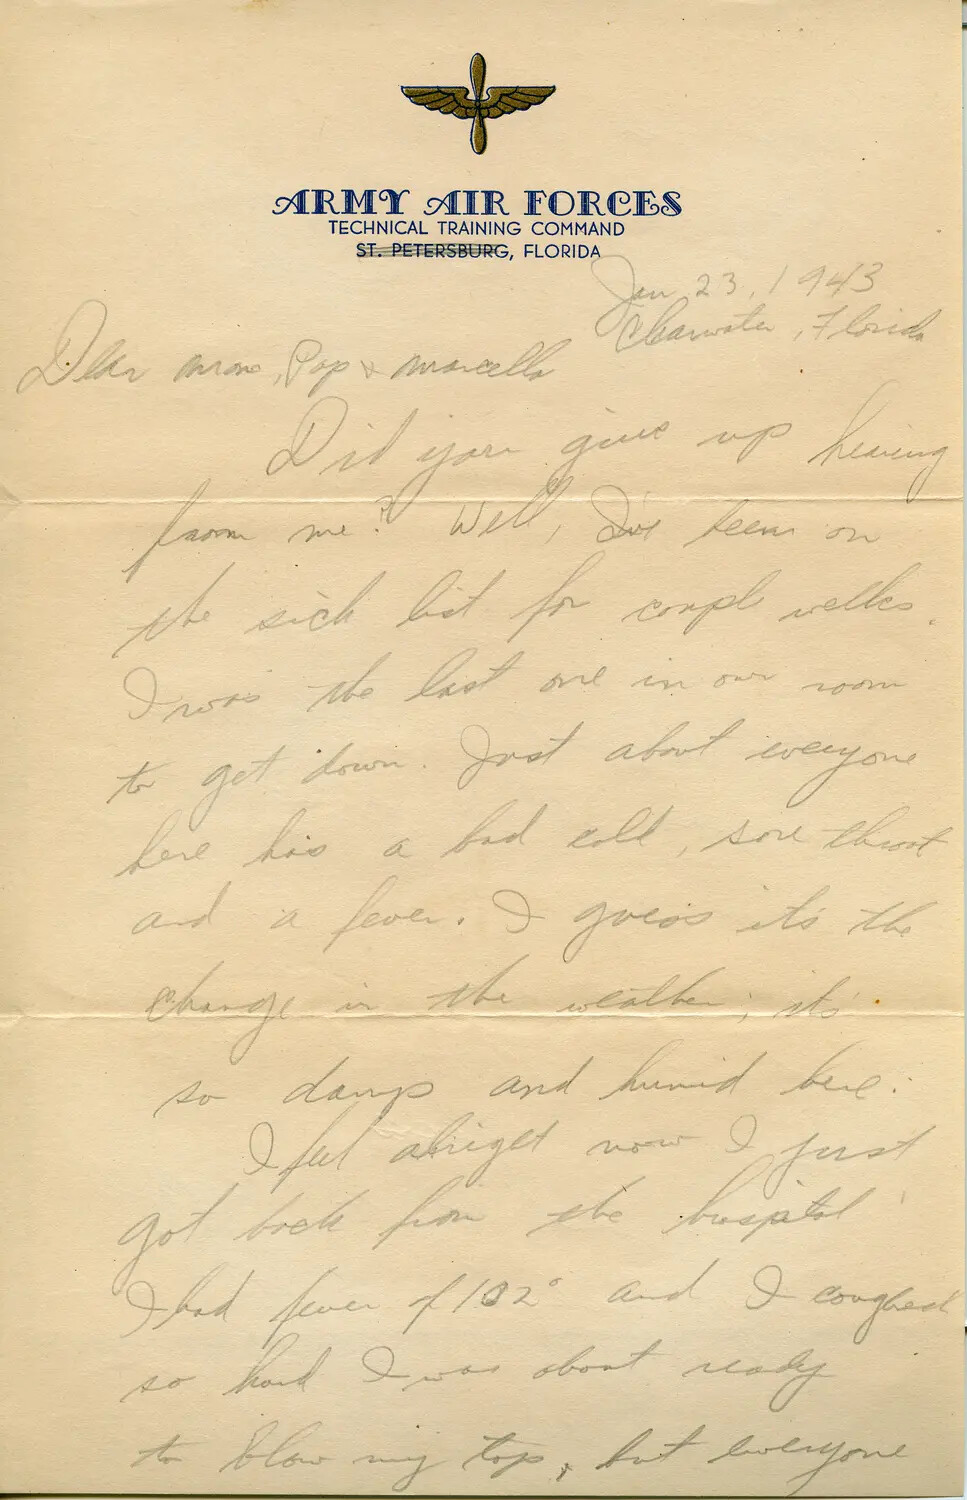 ARMY AIR FORCES
TECHNICAL TRAINING COMMAND
ST. PETERSBURG, FLORIDA
Jan 23, 1943
Clearwater, Florida
Dear Mom, Pop & Marcella
Did you give up hearing
from me? Well, I've been on
the sick list for coupl weeks.
I was the last one in our room
to get down. Just about everyone
here has a bad cold, sore throat
and a fever. I guess it's the
change in the weather; it's
so damp and humid here.
I feel alright now I just
got back from the hospital
I had fever of 102° and I coughed
so hard I was about ready
to blow my top, but everyone